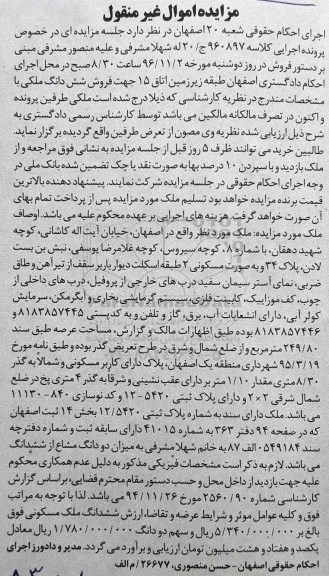 مزایده اموال غیر منقول
اجرای احکام حقوقی شعبه ۲۰ اصفهان در نظر دارد جلسه مزایده ای در خصوص
پرونده اجرایی کلاسه ۹۶۰۸۹۷ ج/۲۰ له شهلا مشرفی و علیه منصور مشرفی مبنی
بر دستور فروش در روز دوشنبه مورخه ۹۶/۱۱/۲ ساعت ۸/۳۰ صبح در محل اجرای
احکام دادگستری اصفهان طبقه زیرزمین اتاق ۱۵ جهت فروش شش دانگ ملکی با
مشخصات مندرج در نظریه کارشناسی که ذیلا درج شده است ملکی طرفین پرونده
و اکنون در تصرف مالکانه مالکین می باشد توسط کارشناس رسمی دادگستری به
شرح ذیل ارزیابی شده نظریه وی مصون از تعرض طرفین واقع گردیده برگزار نماید.
طالبین خرید می توانند ظرف ۵ روز قبل از جلسه مزایده به نشانی فوق مراجعه و از
ملک بازدید و با سپردن ۱۰ درصد بها به صورت نقد یا چک تضمین شده بانک ملی در
وجه اجرای احکام حقوقی در جلسه مزایده شرکت نمایند. پیشنهاد دهنده بالاترین
قیمت برنده مزایده خواهد بود تسلیم ملک مورد مزایده پس از پرداخت تمام بهای
آن صورت خواهد گرفت. هزینه های اجرایی بر عهده محکوم علیه می باشد. اوصاف
ملک مورد مزایده: ملک مورد نظر واقع در اصفهان، خیابان آیت اله کاشانی، کوچه
شهید دهقان، با شماره ۸، کوچه سیروس، کوچه غلامرضا یوسفی، نبش بن بست
لادن، پلاک ۳۴ و به صورت مسکونی ۲ طبقه اسکلت دیوار باربر سقف از تیرآهن و طاق
ضربی، نمای آستر سیمان سفید درب های خارجی از پروفیل، درب های داخلی از
چوب، کف موزاییک، کابینت فلزی، سیستم گرمایشی بخاری و آبگرمکن، سرمایش
کولر آبی، دارای انشعابات آب، برق، گاز و تلفن و به کدپستی ۸۱۸۳۸۵۷۴۴۵ و
۸۱۸۳۸۵۷۴۴۶ بوده طبق اظهارات مالک و گزارش، مساحت عرصه طبق سند
۲۴۹/۸۰ مترمربع و از ضلع شمال و شرق در طرح تعریض گذر بوده و طبق نامه مورخ
۹۵/۳/۱۹ شهرداری منطقه یک اصفهان، پلاک دارای کاربر مسکونی و شمالا به گذر
۸/۳۰ متری مقدار ۱/۱۰ متر بر دارای عقب نشینی و شرقا به گذر ۴ متری پخ در ضلع
شمال شرقی ۲×۲ و دارای پلاک ثبتی ۵۴۲۰-۱۲ و کد نوسازی ۸۴۰-۱۱۱۳۰
می باشد. ملک دارای سند به شماره پلاک ثبتی ۱۲/۵۴۲۰ بخش ۱۴ ثبت اصفهان
که در صفحه ۹۴ دفتر ۳۶۳ به شماره ۴۱۰۱۵ دارای سابقه ثبت و شماره دفترچه
سند ۰۵۴۹۱۸۴ الف ۸۷ به خانم شهلا مشرفی به میزان دو دانگ مشاع از ششدانگ
می باشد. لازم به ذکر است مشخصات فیزیکی مذکور به دلیل عدم همکاری محکوم
علیه جهت بازدید از داخل محل و حسب دستور مقام محترم قضایی، براساس گزارش
کارشناسی شماره ۲۵۶۰/۹۰ مورخ ۹۴/۱۱/۲۶ می باشد. لذا با توجه به مراتب
فوق و کلیه عوامل موثر و شرایط عرضه و تقاضا، ارزش ششدانگ ملک مسکونی فوق
بالغ بر ۵/۳۴۰/۰۰۰/۰۰۰ ریال و سهم دو دانگ ۱/۷۸۰/۰۰۰/۰۰۰ ریال معادل
یکصد و هفتاد و هشت میلیون تومان ارزیابی و برآورد می گردد. مدیر و دادورز اجرای
احکام حقوقی اصفهان - حسن منصوری. ۲۶۶۷۷/م الف